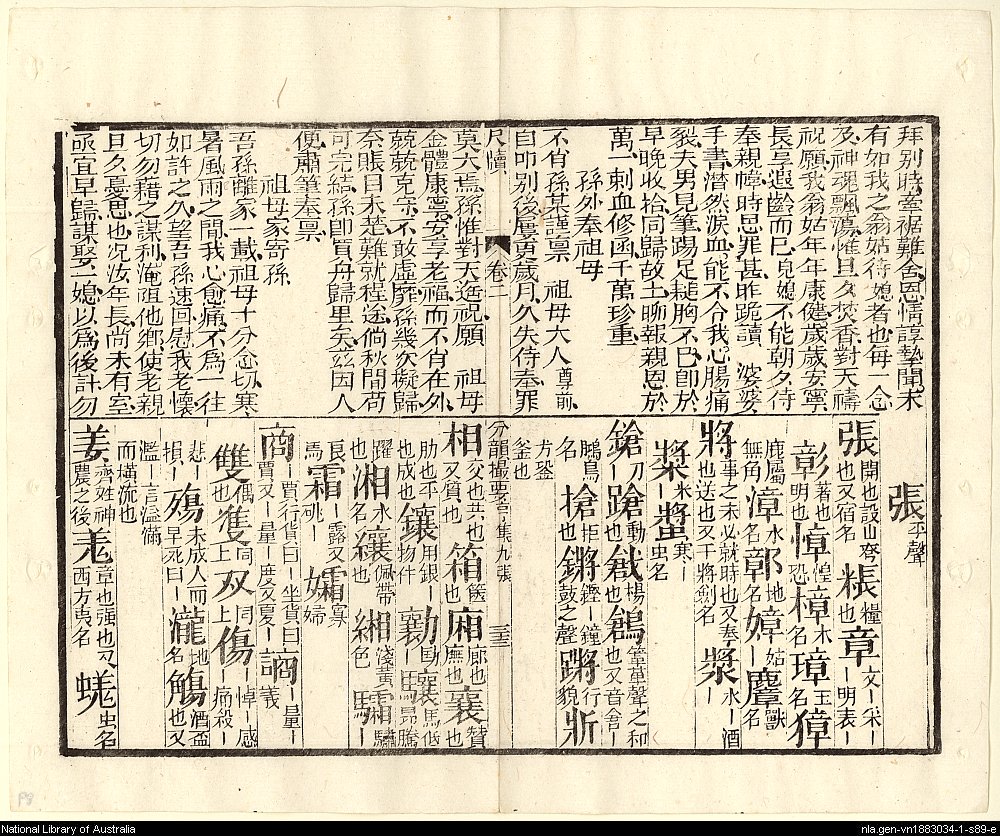 拜別時牽裾難舍恩情諄摯聞末
有如我之翁姑待媳者也每一念
及神魂飄蕩惟旦夕焚香對天禱
祝願我翁姑年年康健歲歲安寧
長享遐齡而已見媳不能朝夕侍
奉親幃時思罪甚昨跪讀 婆婆
手書潸然淚血能不令我心腸痛
裂夫男見筆踢足搥胸不已卽於
早晚收拾同歸故土晰報親恩於
萬一刺血修函千萬珍重
孫外奉祖母
不肖孫某謹禀 祖母大人尊前
自叩別後屢更歲月久失侍奉罪
尺牘 卷二
莫大焉孫惟對天遙祝願 祖母
金體康寧安享老福而不肖在外
兢兢克守不敢虛靡孫幾次擬歸
奈賬目未楚難就程途倘秋間苟
可完結孫卽買舟歸里矣玆因人
便肅筆奉禀
祖母家寄孫
吾孫離家一載祖母十分念切寒
暑風雨之間我心愈痛不為一往
如許之久望吾孫速回慰我老懷
切勿藉之謀利淹阻他鄉使老親
旦夕憂思也况汝年長尚未有室
亟宜早歸謀娶一媳以爲後計勿
張平聲
張開也設也又宿名 粻糧也 章文—采—明表—
彰著也明也 慞惶—恐 樟木名 璋玉名 獐
鹿屬無角 漳水名 鄣地名 嫜姑— 麞獸名
將事之未必就時也又奉也送也又干將劍名 漿水—酒—
漿米— 螿寒—虫名
鎗刀— 蹌動也 戧 鶬
鶬鳥名 槍拒也 鏘鏗—鐘鼓之聲 蹡行貌 斨
方銎斧也
分韻撮要合集 九張 三三
相交也共也又質也 箱篋也 廂廊也廡也 襄贊也
助也平也成也 鑲用銀—物件 勷助也 驤馬低昂騰
躍也 湘水名 纕佩帶也 緗淺黃色 驦驌—
良馬 霜—露又—硃 孀寡婦
商—賈行貨曰—坐貨曰賈又—量—度又夏— 謪—量—義
雙偶也 隻同上 双同上 傷—悼—感—痛殺—
悲—損— 殤未成人而早死曰— 瀧地名 觴酒盃也又
濫—言溢滿而橫流也
姜齊姓神農之後 羌章也强也又西方夷名 蜣虫名
National Library of Australia
nla.gen-vn1883034-1-s89-e